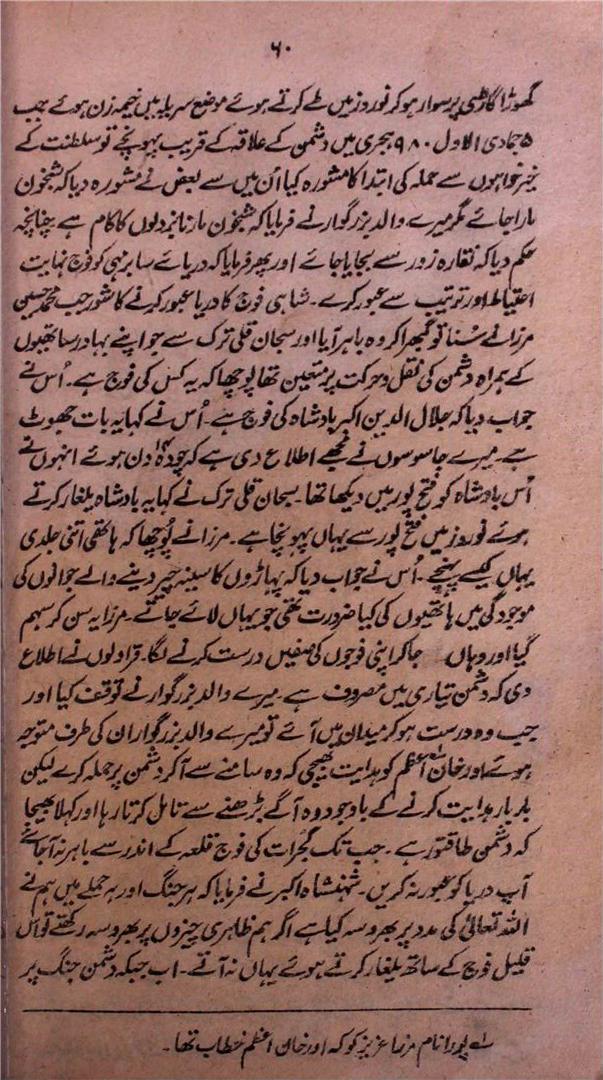 ۶۰
گھوڑا گاڑی پر سوار ہو کر نو روز میں طے کرتے ہوئے موضع سریلہ میں خیمہ زن ہوئے جب
۵ جمادی الاول ۹۸۰ ہجری میں دشمن کے علاقہ کے قریب پہونچے تو سلطنت کے
خیر خواہوں سے حملہ کی ابتدا کا مشورہ کیا ان میں سے بعض نے مشورہ دیا کہ شبخون
مارا جائے مگر میرے والد بزرگوار نے فرمایا کہ شبخون مارنا بزدلوں کا کام ہے چنانچہ
حکم دیا کہ نقارہ زور سے بجایا جائے اور پھر فرمایا کہ دریائے سابرمتی کو فوج نہایت
احتیاط اور ترتیب سے عبور کرے۔ شاہی فوج کا دریا عبور کرنے کا شور جب محمد حسین
مرزا نے سُنا تو گھبرا کر وہ باہر آیا اور سبحان قلی ترک سے جو اپنے بہادر ساتھیوں
کے ہمراہ دشمن کی نقل و حرکت پر متعین تھا پوچھا کہ یہ کس کی فوج ہے۔ اُس نے
جواب دیا کہ جلال الدین اکبر بادشاہ کی فوج ہے۔ اُس نے کہا یہ بات جھوٹ
ہے۔ میرے جاسوسوں نے مجھے اطلاع دی ہے کہ چودہ دن ہوئے انہوں نے
اُس بادشاہ کو فتح پور میں دیکھا تھا۔ سبحان قلی ترک نے کہا یہ بادشاہ یلغار کرتے
ہوئے نو روز میں فتح پور سے یہاں پہونچا ہے۔ مرزا نے پُوچھا کہ ہاتھی اتنی جلدی
یہاں کیسے پہنچے۔ اُس نے جواب دیا کہ پہاڑوں کا سینہ چیر دینے والے جوانوں کی
موجودگی میں ہاتھیوں کی کیا ضرورت تھی جو یہاں لائے جاتے۔ مرزا یہ سن کر سہم
گیا اور وہاں جا کر اپنی فوجوں کی صفیں درست کرنے لگا۔ قراولوں نے اطلاع
دی کہ دشمن تیاری میں مصروف ہے۔ میرے والد بزرگوار نے توقف کیا اور
جب وہ درست ہو کر میدان میں آئے تو میرے والد بزرگوار ان کی طرف متوجہ
ہوئے اور خان اعظم کو ہدایت بھیجی کہ وہ سامنے سے آ کر دشمن پر حملہ کرے لیکن
بار بار ہدایت کرنے کے باوجود وہ آگے بڑھنے سے تامل کرتا رہا اور کہلا بھیجا
کہ دشمن طاقتور ہے۔ جب تک گجرات کی فوج قلعہ کے اندر سے باہر نہ آ جائے
آپ دریا کو عبور نہ کریں۔ شہنشاہ اکبر نے فرمایا کہ ہر جنگ اور ہر حملے میں ہم نے
اللہ تعالیٰ کی مدد پر بھروسہ کیا ہے اگر ہم ظاہری چیزوں پر بھروسہ رکھتے تو اس
قلیل فوج کے ساتھ یلغار کرتے ہوئے یہاں نہ آتے۔ اب جبکہ دشمن جنگ پر
؎ پورا نام مرزا عزیز کوکہ اور خان اعظم خطاب تھا۔